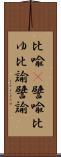 比喩譬喩比
ゆ比諭譬諭